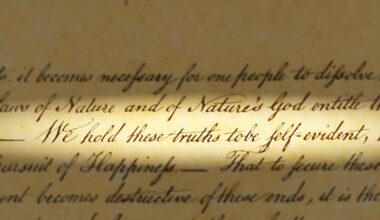 it becomes neceſsary for one people to diſsolve
Laws of Nature and of Nature's God entitle
— We hold these truths to be ſelf-evident,
pursuit of Happineſs. — That to secure these
becomes destructive of these ends, it is the